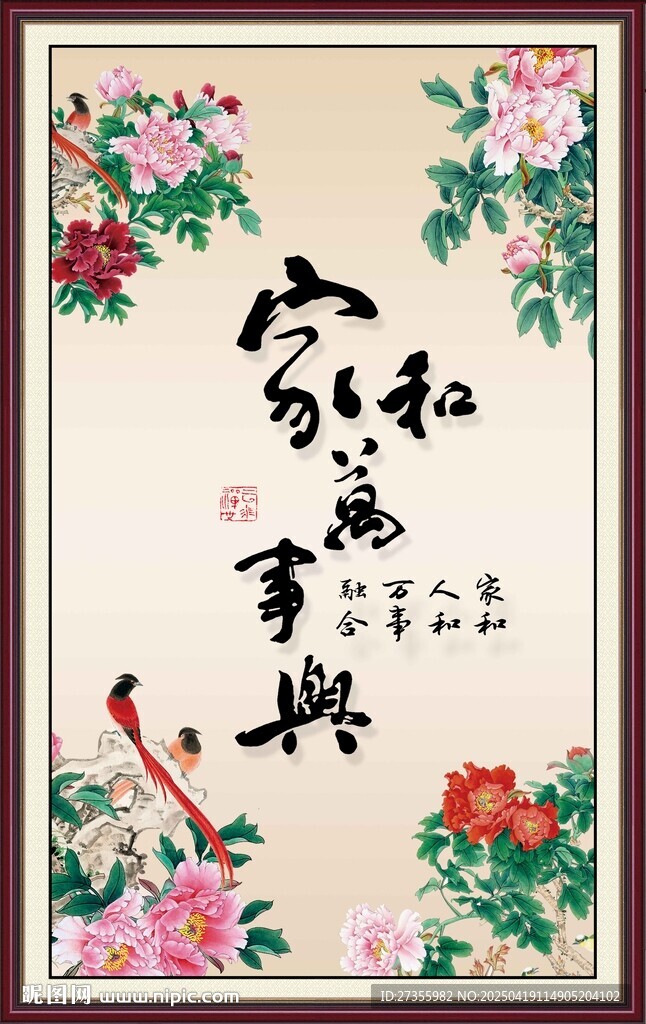 家和萬事興
家和
人和
万事
融合
昵图网 www.nipic.com
ID:27355982 NO:20250419114905204102